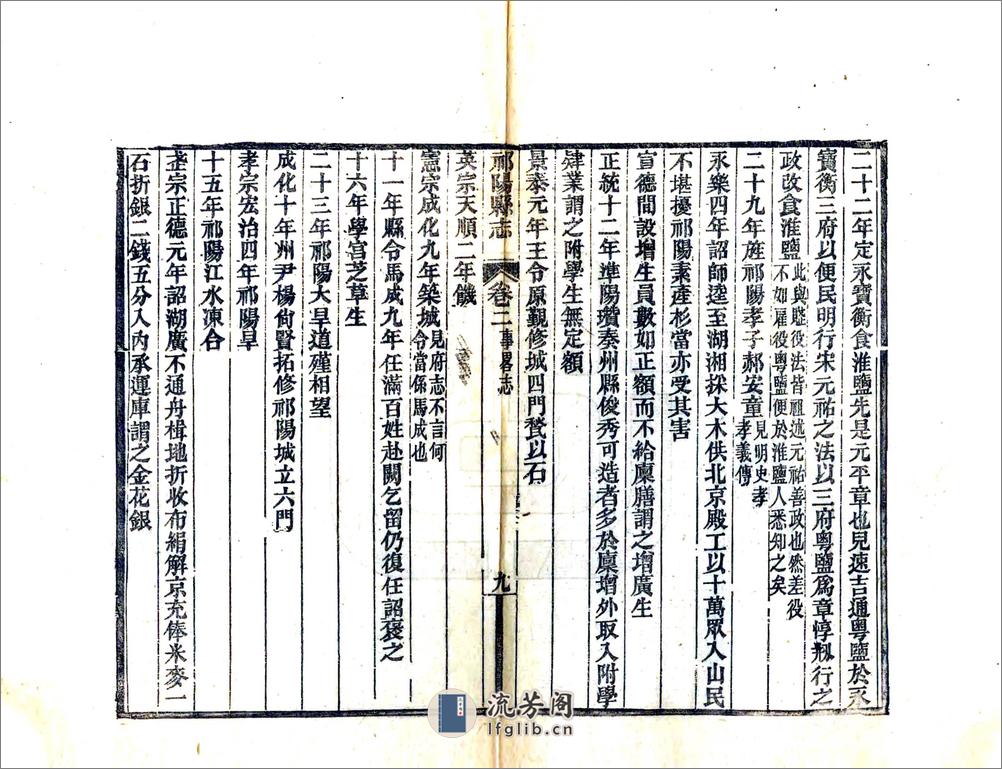 二十二年定永寶衡食淮鹽先是元平章也兒速吉通粵鹽於永
寶衡三府以便民明行宋元祐之法以三府粵鹽爲章惇刱行之
政改食淮鹽此與賤役法皆祖述元祐善政也然差役
不如雇役粵鹽便於淮鹽人悉知之矣
二十九年旌祁陽孝子郝安童見明史孝
孝義傳
永樂四年詔師逵至湖湘採大木供北京殿工以十萬眾入山民
不堪擾祁陽素產杉當亦受其害
宣德間設增生員數如正額而不給廩膳謂之增廣生
正統十二年準陽瓚奏州縣俊秀可造者多於廩增外取入附學
肄業謂之附學生無定額
景泰元年王令原覲修城四門甃以石
祁陽縣志
卷二事畧志
九
英宗天順二年饑
憲宗成化九年築城見府志不言何
令當係馬成也
十一年縣令馬成九年任滿百姓赴闕乞留仍復任詔褒之
十六年學宮芝草生
二十三年祁陽大旱道殣相望
成化十年州尹楊尙賢拓修祁陽城立六門
孝宗宏治四年祁陽旱
十五年祁陽江水凍合
武宗正德元年詔湖廣不通舟楫地折收布絹解京充俸米麥一
石折銀二錢五分入內承運庫謂之金花銀
流芳阁
lfglib.cn